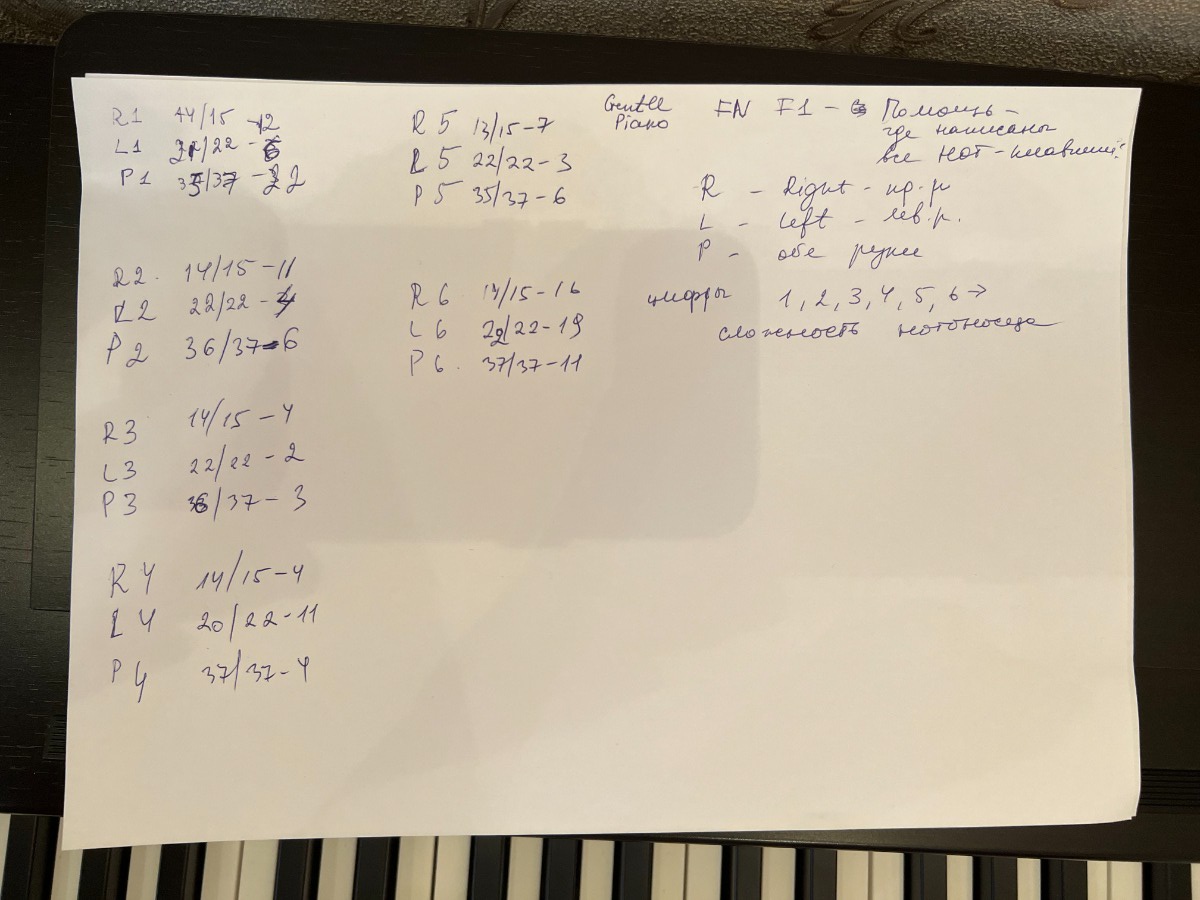 R1 14/15 - 12
L1 21/22 - 6
P1 35/37 - 22
R2. 14/15 - 11
L2 22/22 - 4
P2 36/37 - 6
R3 14/15 - 4
L3 22/22 - 2
P3 36/37 - 3
R4 14/15 - 4
L4 20/22 - 11
P4 37/37 - 4
R5 13/15 - 7
L5 22/22 - 3
P5 35/37 - 6
R6 14/15 - 16
L6 22/22 - 19
P6. 37/37 - 11
Gentle
Piano
FN F1 - Помощь -
где написаны
все нот-клавиши!
R - Right - пр.р
L - Left - лев.р.
P - обе руки
цифры 1, 2, 3, 4, 5, 6 →
сложность нотоносца